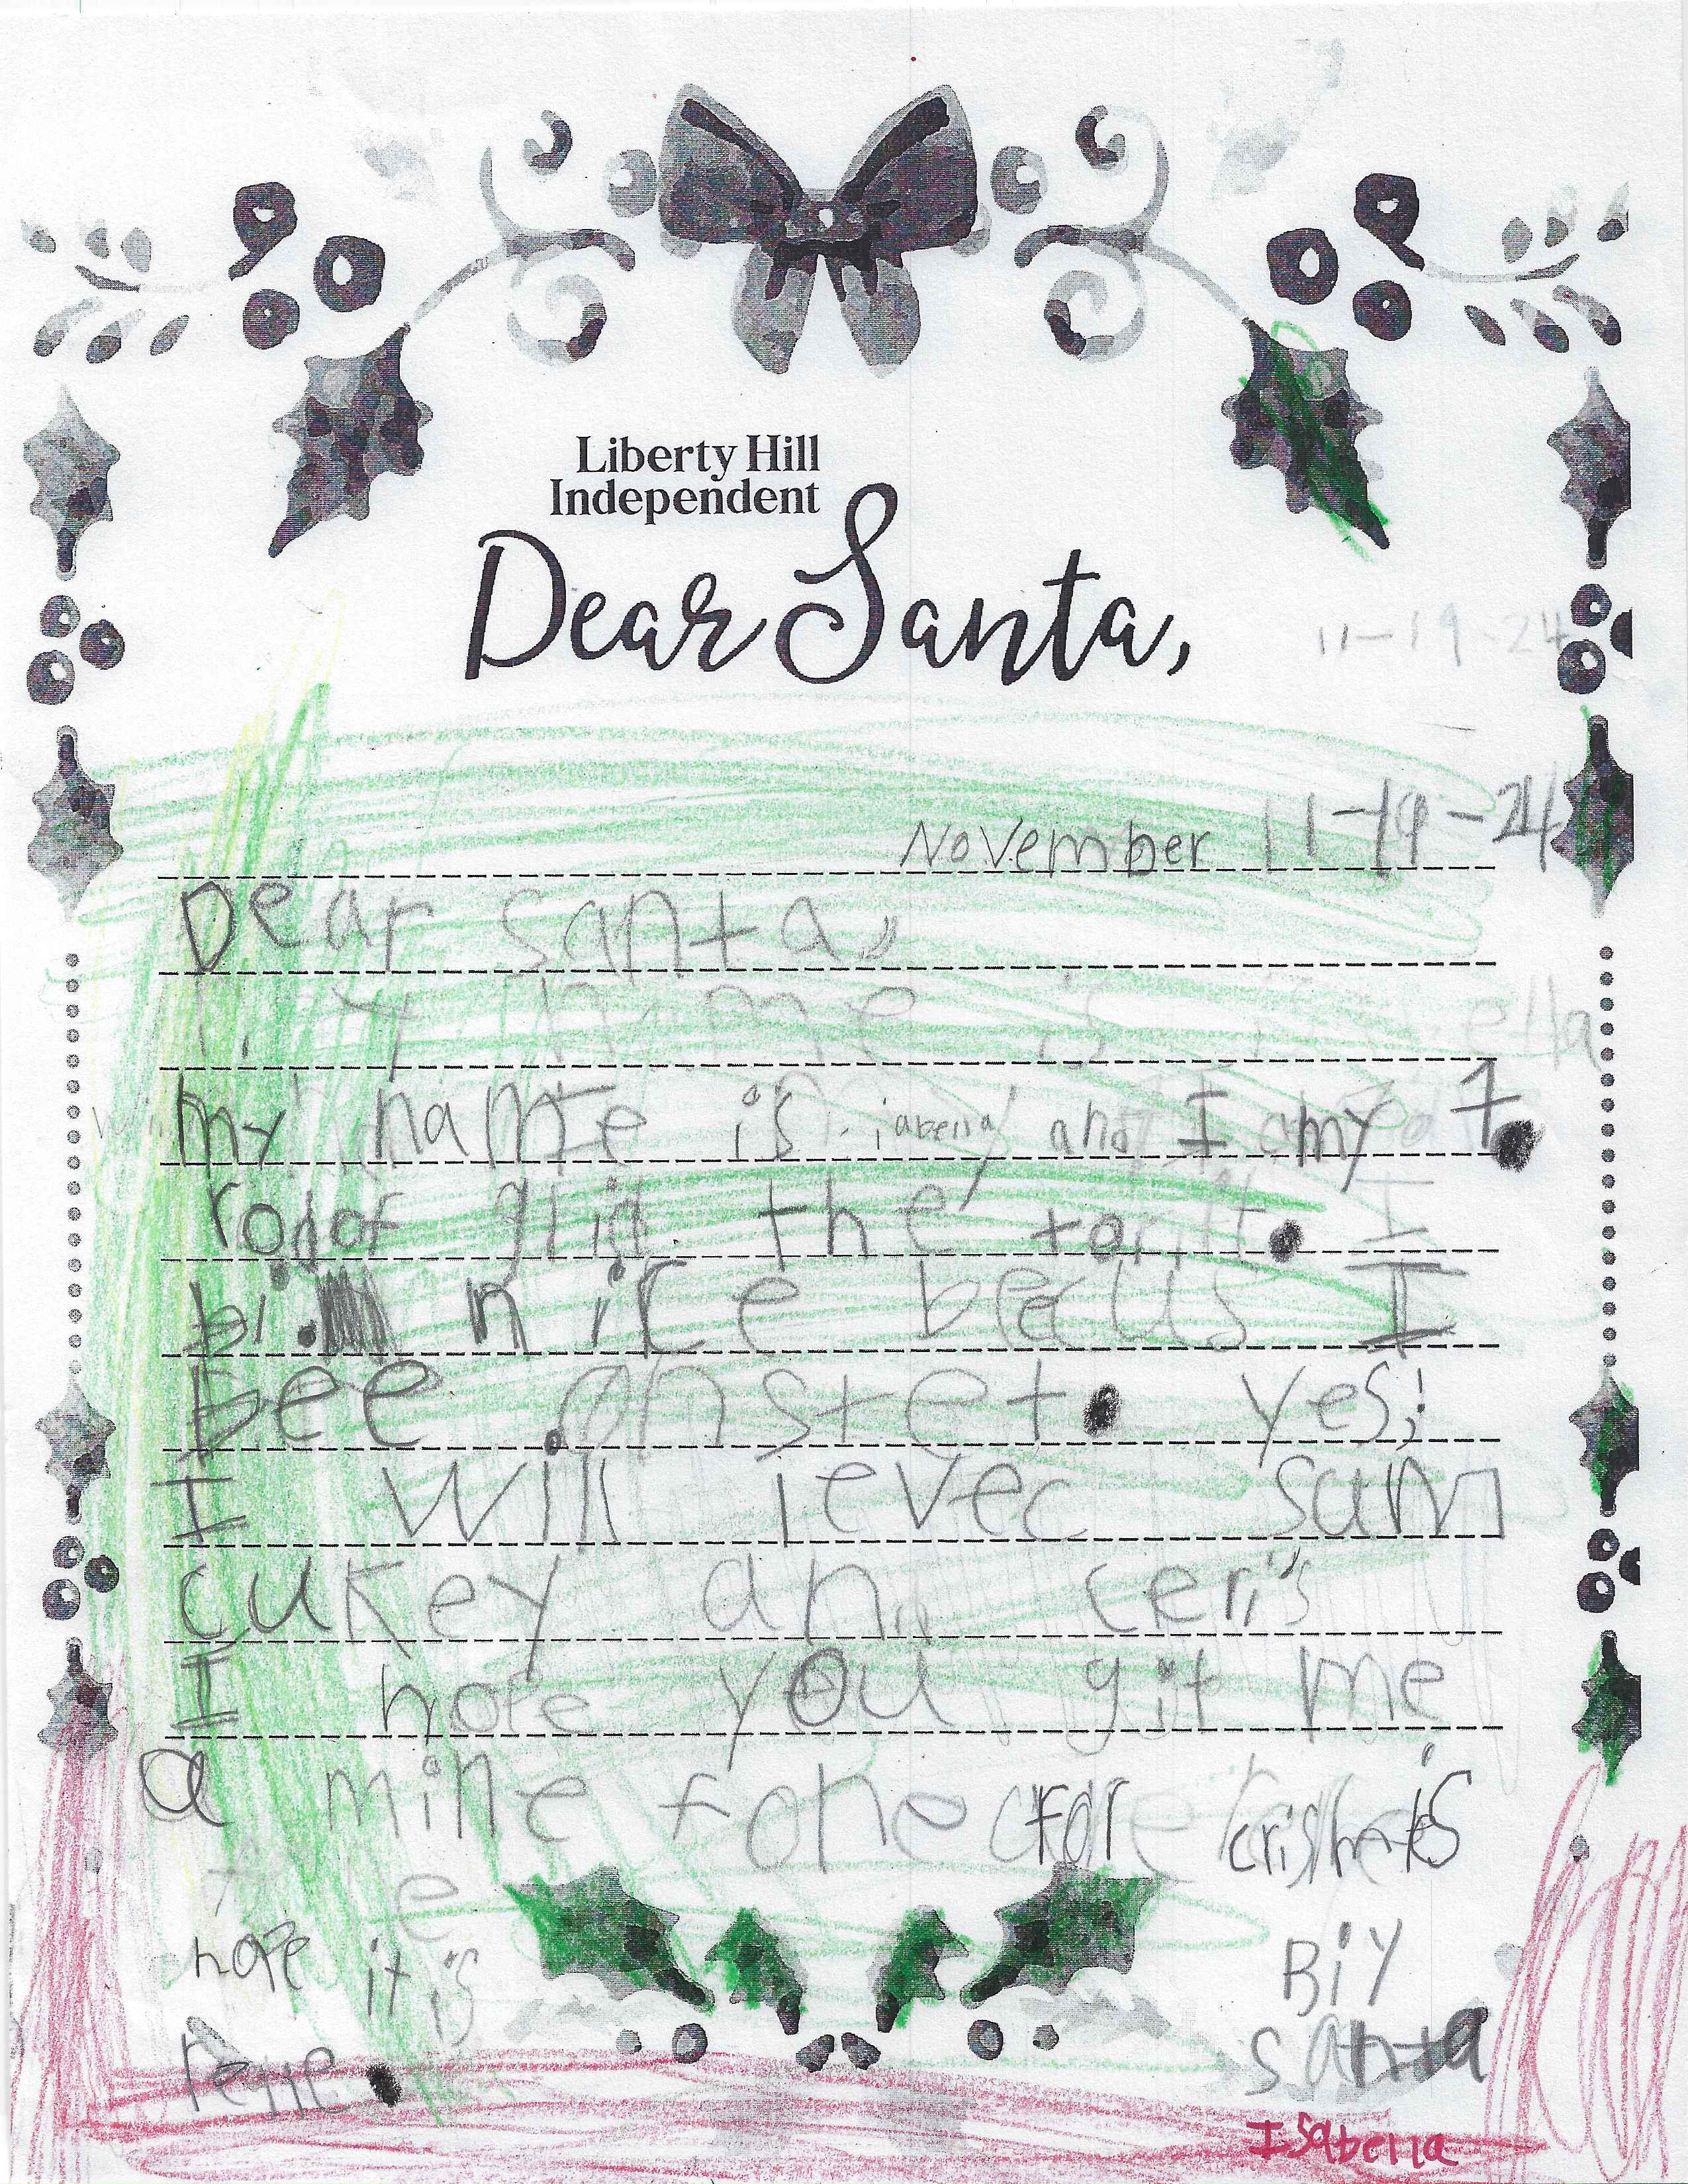 Liberty Hill
Independent
Dear Santa,
11-19-24
November 11-19-24
Dear Santa,
my name is
my name is iabella and I amy 7.
the I
nice becus I
bee onstret. yes!
I will ievec sum
cukey an ceris
I hope you git me
a mine fone for crishmis
hope it is
Biy
santa
Isabella